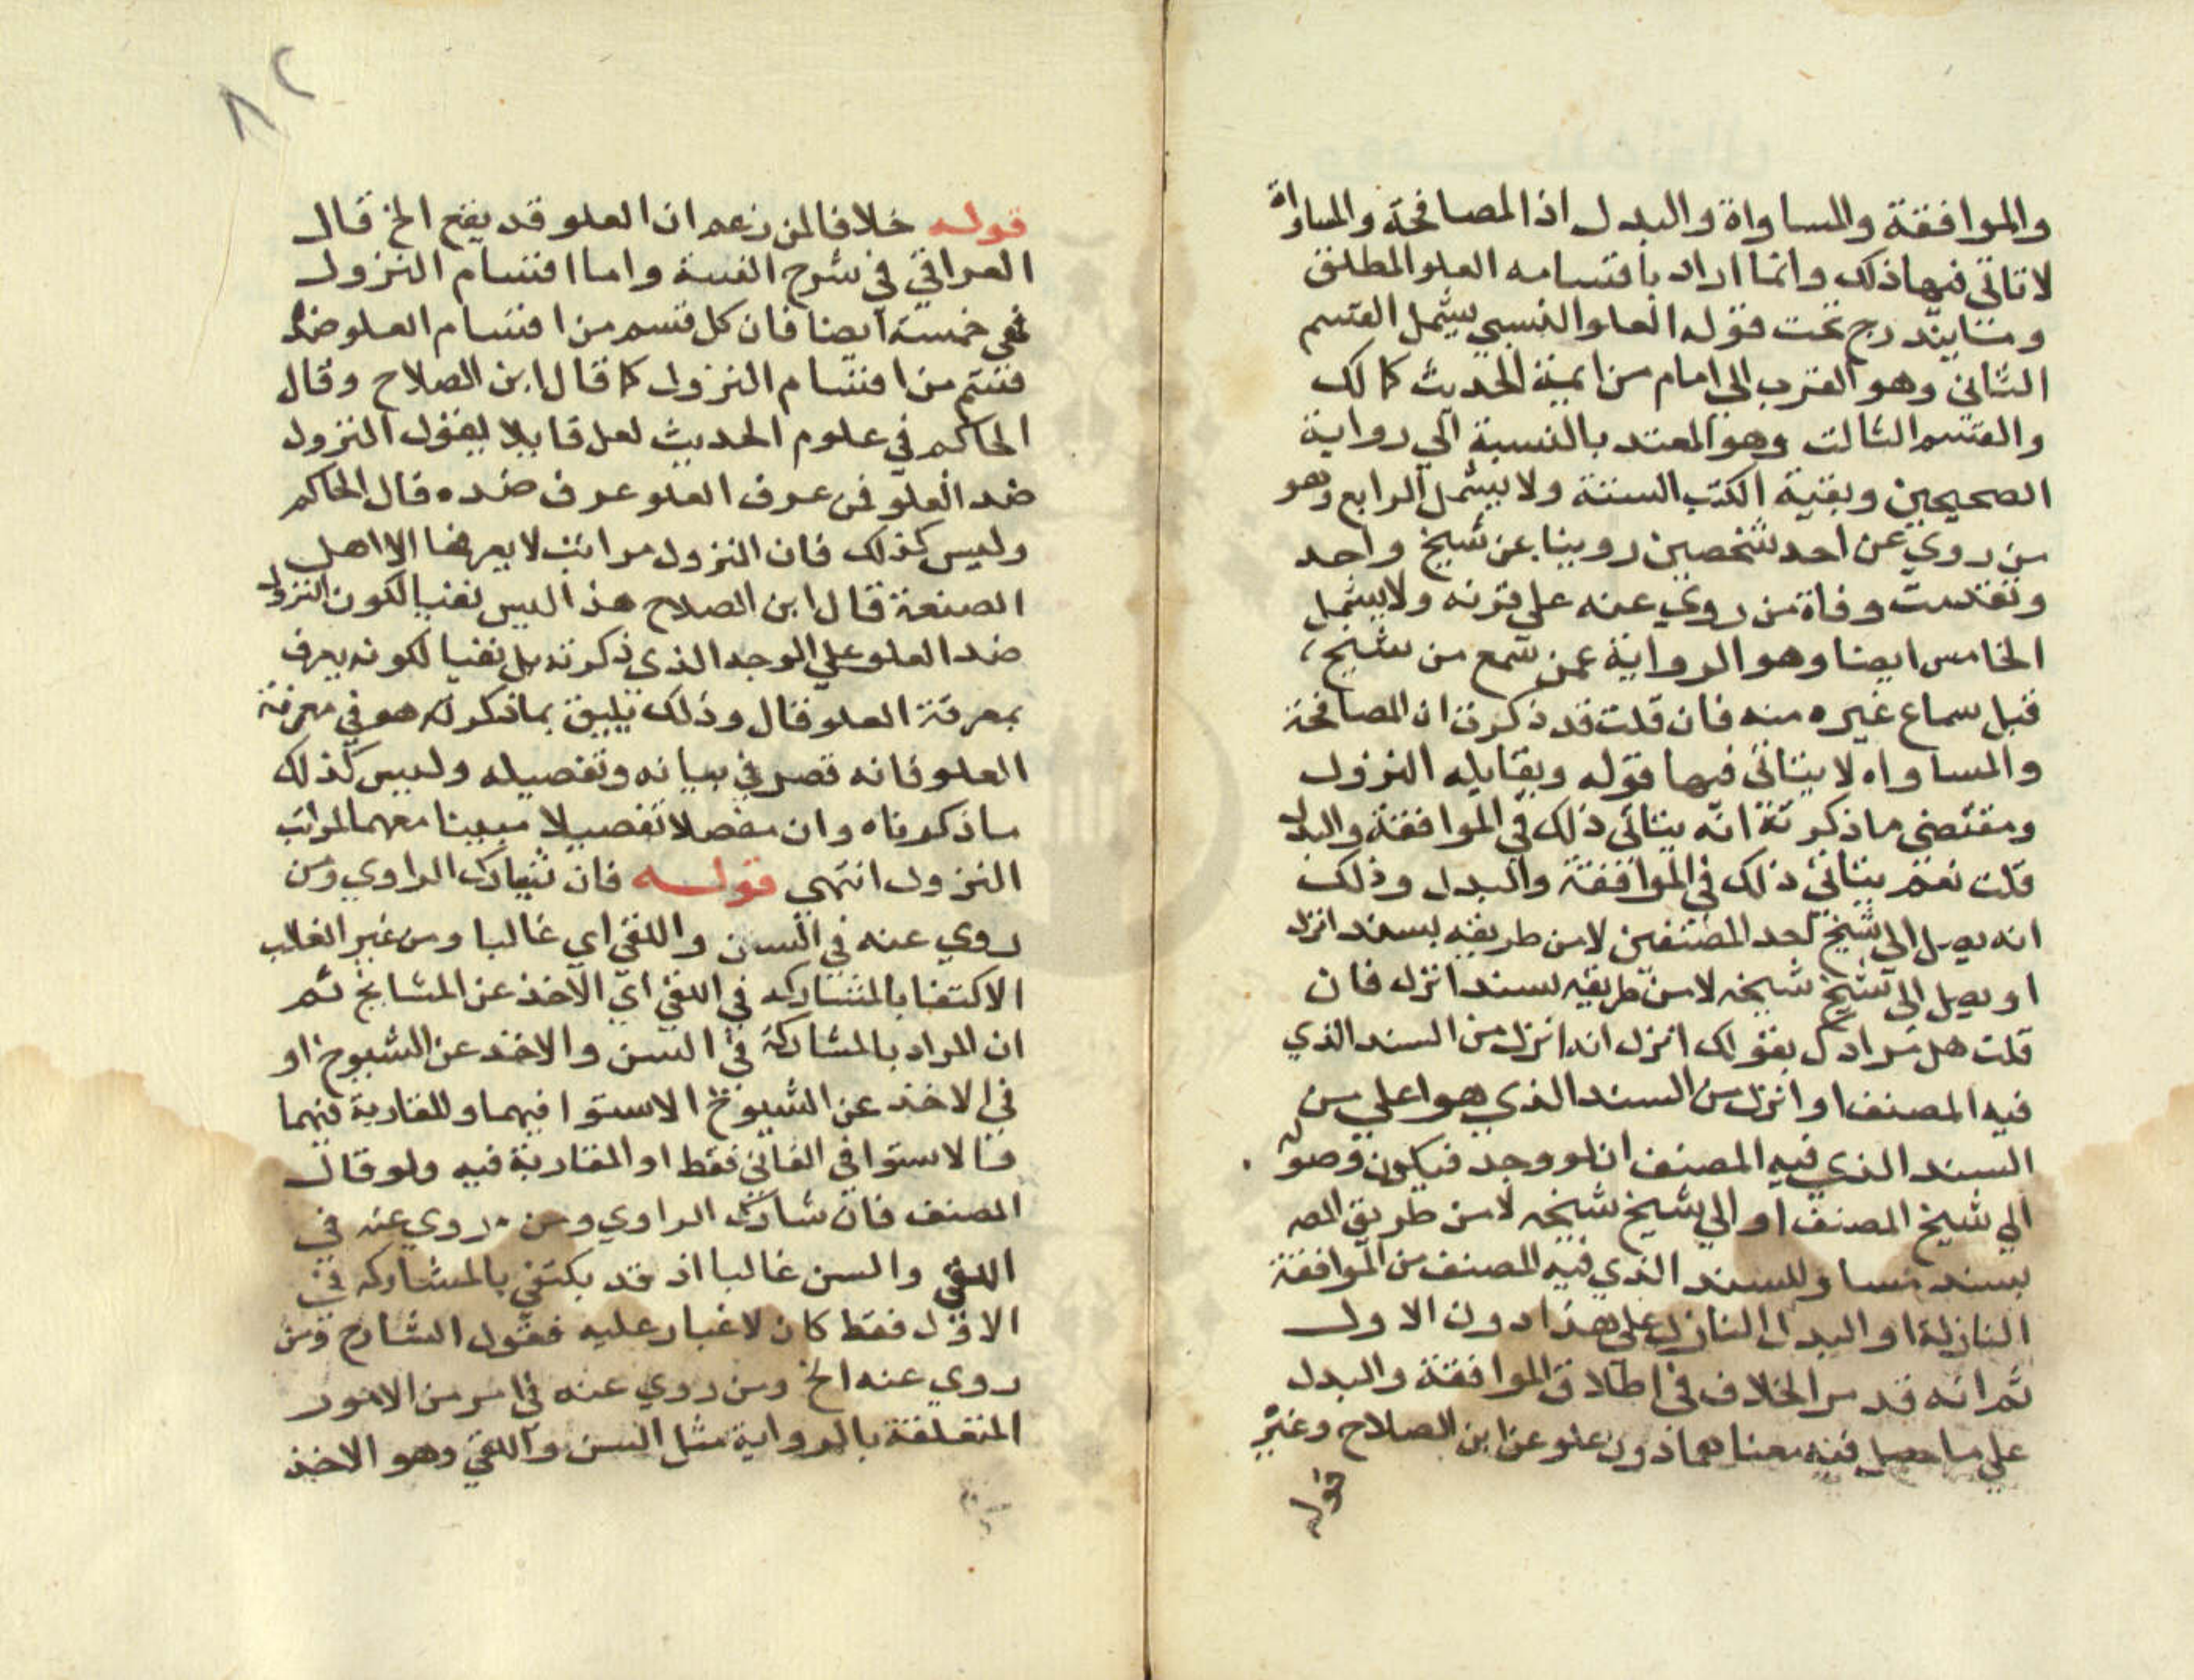 والموافقة والمساواة والبدل اذ المصافحة والمساواة
لا تاتي فيها ذلك وانما اراد باقسامه العلو المطلق
وما يندرج تحت قوله العلو النسبي يشمل القسم
الثاني وهو القرب الي امام من ايمة الحديث كمالك
والقسم الثالث وهو المعتد بالنسبة الي رواية
الصحيحين وبقية الكتب الستة ولا يشمل الرابع وهو
من روي عن احد شخصين رويا عن شيخ واحد
وتقدمت وفاة من روي عنه علي قرنه ولا يشمل
الخامس ايضا وهو الرواية عمن سمع من شيخ
قبل سماع غيره منه فان قلت قد ذكرت ان المصافحة
والمساواه لا يتاتي فيها قوله ويقابله النزول
ومقتضي ما ذكرته انه يتاتي ذلك في الموافقة والبدل
قلت نعم يتاتي ذلك في الموافقة والبدل وذلك
انه يصل الي شيخ احد المصنفين لا من طريقه بسند انزل
او يصل الي شيخ شيخه لا من طريقه بسند انزل فان
قلت هل مرادك بقولك انزل انه انزل من السند الذي
فيه المصنف او انزل من السند الذي هو اعلي من
السند الذي فيه المصنف ان لو وجد فيكون وصوله
الي شيخ المصنف او الي شيخ شيخه لا من طريق المص
بسند مساو للسند الذي فيه المصنف من الموافقة
النازلة او البدل النازل علي هذا دون الاول
ثم انه قد مر الخلاف في اطلاق الموافقة والبدل
علي ما حصل فيه معناهما دون علو عن ابن الصلاح وغيره
قوله
٨٢
قوله خلافا لمن زعم ان العلو قد يقع الخ قال
العراقي في شرح الفيته واما اقسام النزول
فهي خمسة ايضا فان كل قسم من اقسام العلو ضده
قسم من اقسام النزول كما قال ابن الصلاح وقال
الحاكم في علوم الحديث لعل قايلا يقول النزول
ضد العلو فمن عرف العلو عرف ضده قال الحاكم
وليس كذلك فان النزول مراتب لا يعرفها الا اهل
الصنعة قال ابن الصلاح هذا ليس نفيا لكون النزول
ضد العلو علي الوجه الذي ذكرته بل نفيا لكونه يعرف
بمعرفة العلو قال وذلك يليق بما ذكره هو في معرفة
العلو فانه قصر في بيانه وتفصيله وليس كذلك
ما ذكرناه وان مفصلا تفصيلا مبينا مفهما لمراتب
النزول انتهي قوله فان تشارك الراوي ومن
روي عنه في السن واللقي اي غالبا ومن غير الغالب
الاكتفا بالمشاركه في اللقي اي الاخذ عن المشايخ ثم
ان المراد بالمشاركة في السن والاخذ عن الشيوخ او
في الاخذ عن الشيوخ الاستوا فيهما والمقاربة فيهما
فالاستوا في الثاني فقط او المقاربة فيه ولو قال
المصنف فان شارك الراوي ومن روي عنه في
اللقي والسن غالبا اذ قد يكتفي بالمشاركه في
الاول فقط كان لا غبار عليه فقول الشارح ومن
روي عنه الخ ومن روي عنه في امر من الامور
المتعلقة بالرواية مثل السن واللقي وهو الاخذ